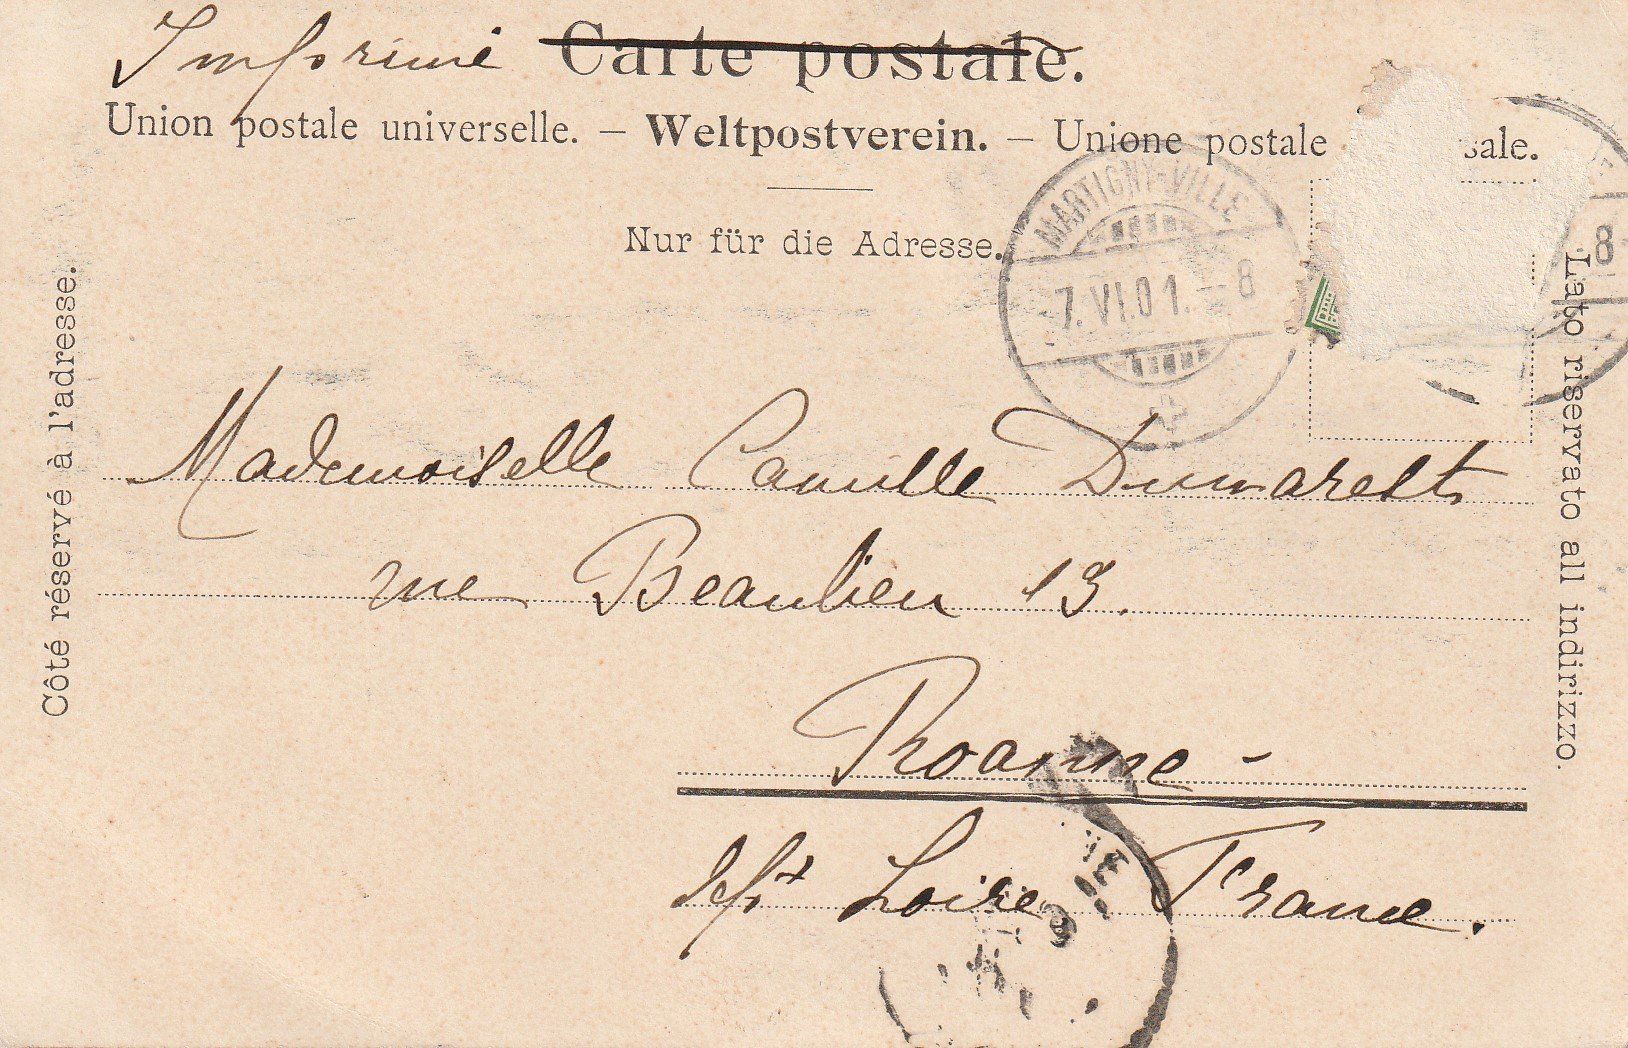 Imprimé Carte postale.
Union postale universelle. – Weltpostverein. – Unione postale sale.
Nur für die Adresse.
MARTIGNY-VILLE
7.VI.01. – 8
8
Côté réservé à l'adresse.
Lato riservato all indirizzo.
Mademoiselle Camille Dumarest
rue Beaulieu 13.
Roanne –
dépt Loire France.